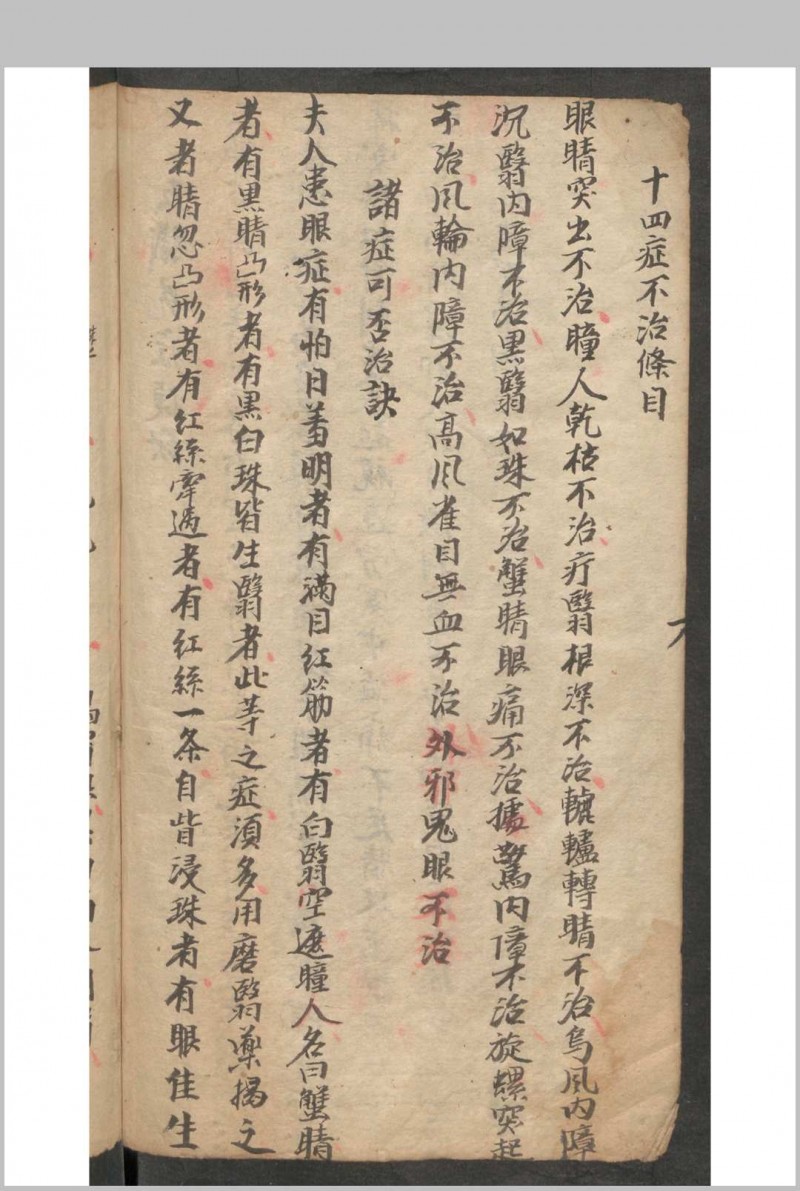 十四症不治條目
眼睛突出不治瞳人乾枯不治疔翳根深不治轆轤轉睛不治烏風內障
沉翳内障不治黑翳如珠不治蟹睛眼痛不治攄驚内障不治旋螺突起
不治風輪内障不治高風雀目無血不治外邪鬼眼不治
諸症可否治訣
夫人患眼症有怕日羞明者有滿目紅筋者有白翳空遮瞳人名曰蟹睛
者有黑睛凸形者有黑白珠皆生翳者此等之症須多用磨翳藥揭之
又者睛忽凸形者有紅絲牽過者有紅絲一条自眥浸珠者有眼住生